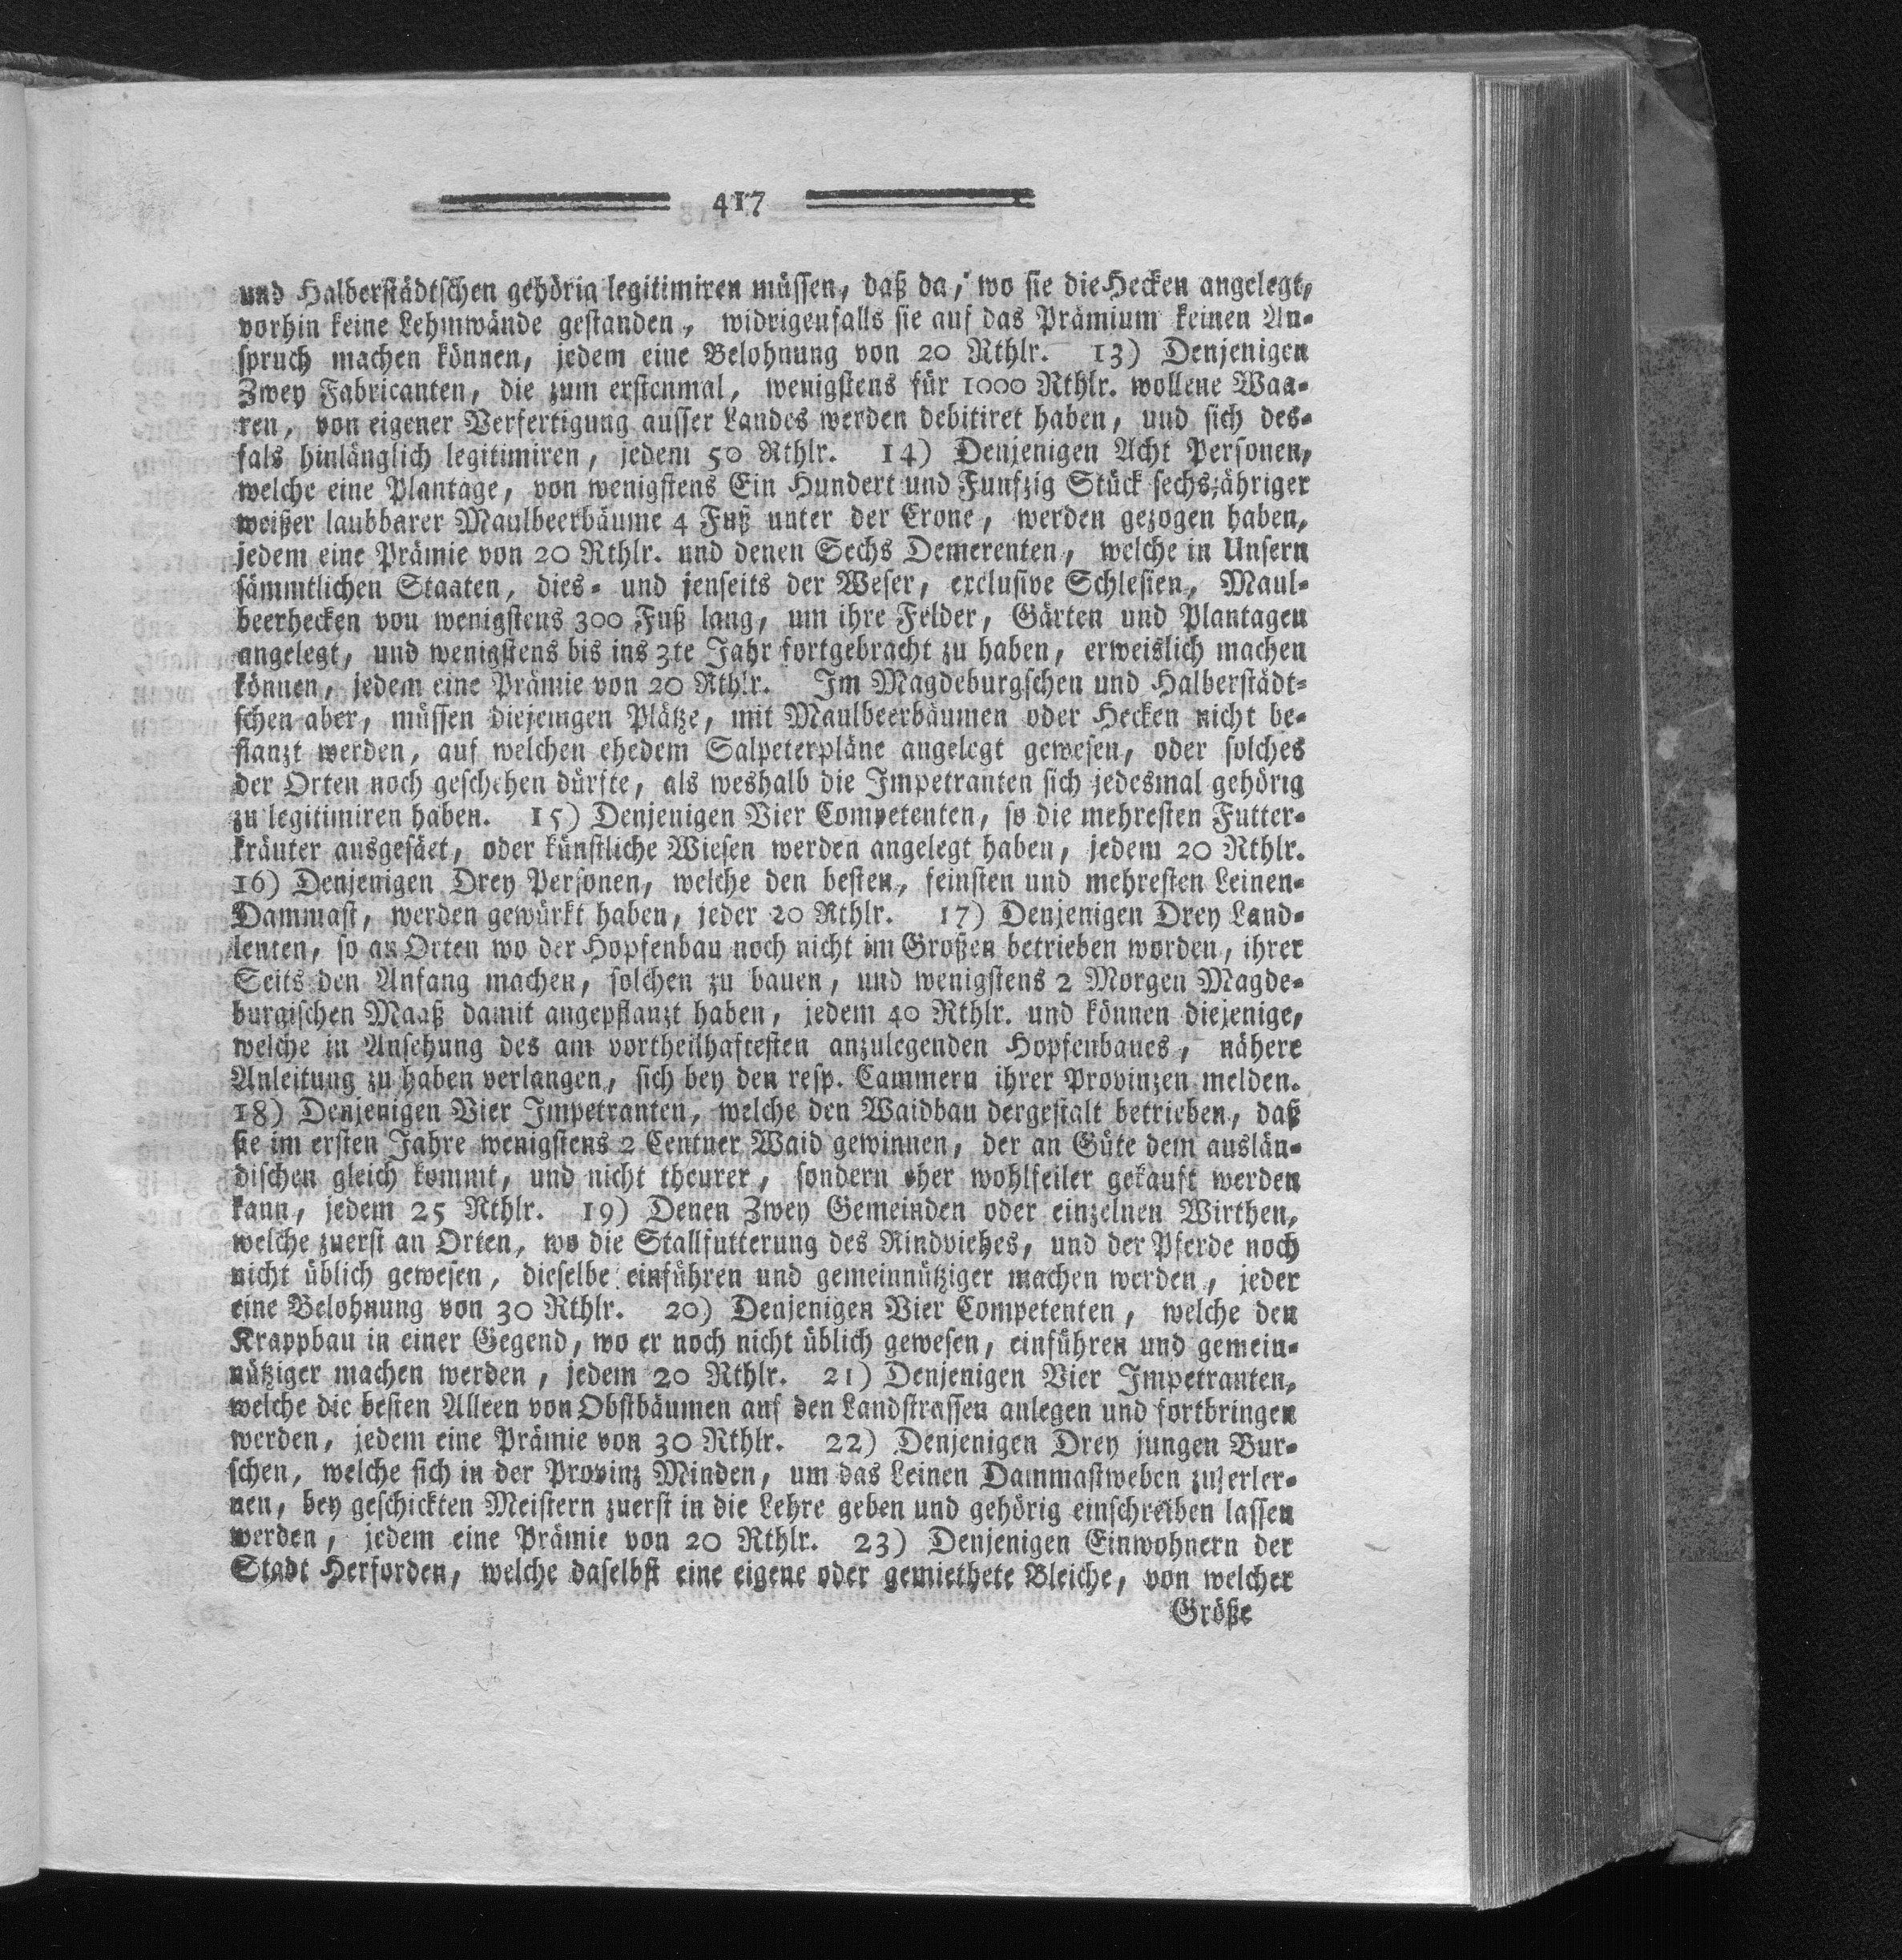 417
und Halberstädtschen gehörig legitimiren müssen, daß da, wo sie die Hecken angelegt,
vorhin keine Lehmwände gestanden, widrigenfalls sie auf das Prämium keinen An-
spruch machen können, jedem eine Belohnung von 20 Rthlr. 13) Denjenigen
Zwey Fabricanten, die zum erstenmal, wenigstens für 1000 Rthlr. wollene Waa-
ren, von eigener Verfertigung ausser Landes werden debitiret haben, und sich des-
fals hinlänglich legitimiren, jedem 50 Rthlr. 14) Denjenigen Acht Personen,
welche eine Plantage, von wenigstens Ein Hundert und Funfzig Stück sechsjähriger
weißer laubbarer Maulbeerbäume 4 Fuß unter der Crone, werden gezogen haben,
jedem eine Prämie von 20 Rthlr. und denen Sechs Demerenten, welche in Unsern
sämmtlichen Staaten, dies- und jenseits der Weser, exclusive Schlesien, Maul-
beerhecken von wenigstens 300 Fuß lang, um ihre Felder, Gärten und Plantagen
angelegt, und wenigstens bis ins 3te Jahr fortgebracht zu haben, erweislich machen
können, jedem eine Prämie von 20 Rthlr. Im Magdeburgschen und Halberstädt-
schen aber, müssen diejenigen Plätze, mit Maulbeerbäumen oder Hecken nicht be-
flanzt werden, auf welchen ehedem Salpeterpläne angelegt gewesen, oder solches
der Orten noch geschehen dürfte, als weshalb die Impetranten sich jedesmal gehörig
zu legitimiren haben. 15) Denjenigen Vier Competenten, so die mehresten Futter-
kräuter ausgesäet, oder künstliche Wiesen werden angelegt haben, jedem 20 Rthlr.
16) Denjenigen Drey Personen, welche den besten, feinsten und mehresten Leinen-
Dammast, werden gewürkt haben, jeder 20 Rthlr. 17) Denjenigen Drey Land-
leuten, so an Orten wo der Hopfenbau noch nicht im Großen betrieben worden, ihrer
Seits den Anfang machen, solchen zu bauen, und wenigstens 2 Morgen Magde-
burgischen Maaß damit angepflanzt haben, jedem 40 Rthlr. und können diejenige,
welche in Ansehung des am vortheilhaftesten anzulegenden Hopfenbaues, nähere
Anleitung zu haben verlangen, sich bey den resp. Cammern ihrer Provinzen melden.
18) Denjenigen Vier Impetranten, welche den Waidbau dergestalt betrieben, daß
sie im ersten Jahre wenigstens 2 Centner Waid gewinnen, der an Güte dem auslän-
dischen gleich kommt, und nicht theurer, sondern eher wohlfeiler gekauft werden
kann, jedem 25 Rthlr. 19) Denen Zwey Gemeinden oder einzelnen Wirthen,
welche zuerst an Orten, wo die Stallfutterung des Rindviehes, und der Pferde noch
nicht üblich gewesen, dieselbe einführen und gemeinnütziger machen werden, jeder
eine Belohnung von 30 Rthlr. 20) Denjenigen Vier Competenten, welche den
Krappbau in einer Gegend, wo er noch nicht üblich gewesen, einführen und gemein-
nütziger machen werden, jedem 20 Rthlr. 21) Denjenigen Vier Impetranten,
welche die besten Alleen von Obstbäumen auf den Landstrassen anlegen und fortbringen
werden, jedem eine Prämie von 30 Rthlr. 22) Denjenigen Drey jungen Bur-
schen, welche sich in der Provinz Minden, um das Leinen Dammastweben zu erler-
nen, bey geschickten Meistern zuerst in die Lehre geben und gehörig einschreiben lassen
werden, jedem eine Prämie von 20 Rthlr. 23) Denjenigen Einwohnern der
Stadt Herforden, welche daselbst eine eigene oder gemiethete Bleiche, von welcher
Größe